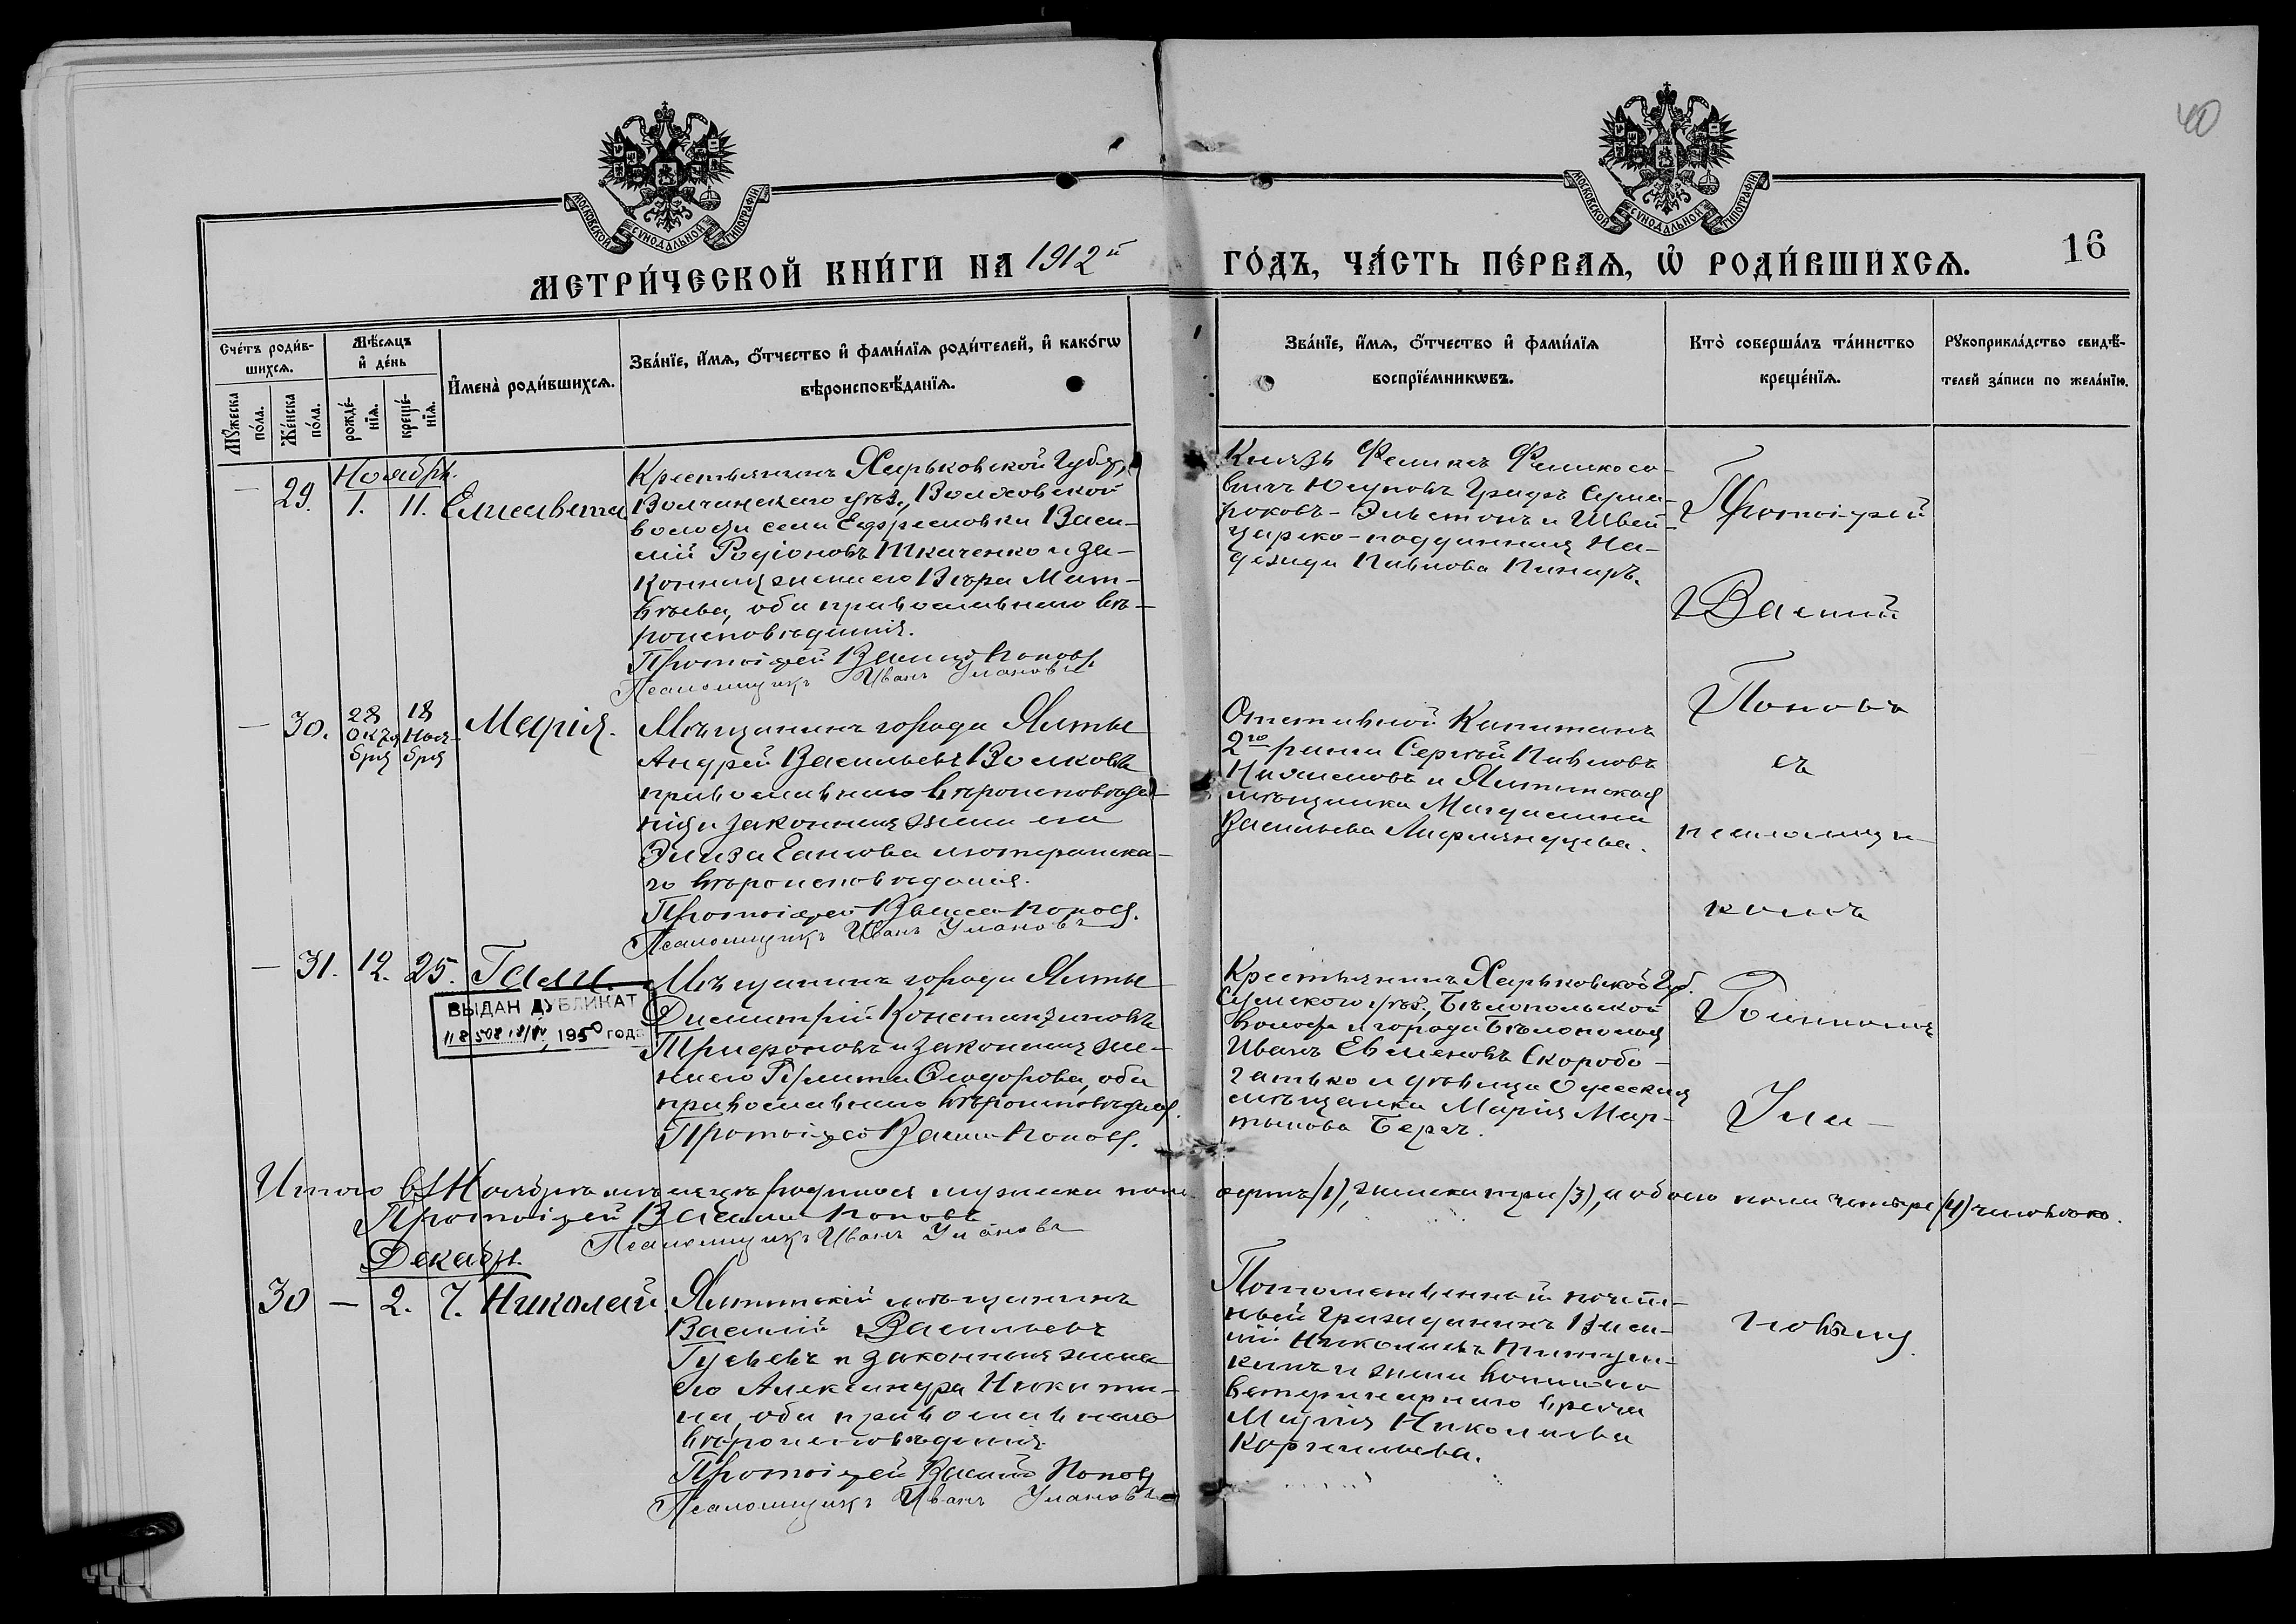 40
МОСКОВСКОЙ СУНОДАЛЬНОЙ ТИПОГРАФІИ
МОСКОВСКОЙ СУНОДАЛЬНОЙ ТИПОГРАФІИ
МЕТРИ́ЧЕСКОЙ КНИ́ГИ НА 1912й
ГО́ДЪ, ЧА́СТЬ ПЕ́РВАѦ, Ѡ҆ РОДИ́ВШИХСѦ.
16
Сче́тъ роди́в-
шихсѧ.
Мꙋ́жеска по́ла.
Же́нска по́ла.
Мѣ́сѧцъ и҆ де́нь
рожде́-нїѧ.
креще́-нїѧ.
И҆мена̀ роди́вшихсѧ.
Зва́нїе, и҆́мѧ, ѻ҆́тчество и҆ фами́лїѧ роди́телей, и҆ како́гѡ
вѣроисповѣ́данїѧ.
Зва́нїе, и҆́мѧ, ѻ҆́тчество и҆ фами́лїѧ
воспрїе́мникѡвъ.
Кто̀ соверша́лъ та́инство
креще́нїѧ.
Рꙋкоприкла́дство свидѣ́-
телей за́писи по жела́нїю.
Ноябрь.
— 29. 1. 11. Елисавета
Крестьянинъ Харьковской Губ.,
Волчанскаго уѣз.,
волости села Ефремовки Васи-
лій Родіоновъ Ткаченко и за-
конная жена его Вѣра Мат-
вѣева, оба православнаго вѣ-
роисповѣданія.
Протоіерей Василій Поповъ
Псаломщикъ Иванъ Улановъ
Князь Феликсъ Феликсо-
вичъ Юсуповъ Графъ Сума-
роковъ-Эльстонъ и Швей-
царско-подданная На-
дежда Павлова
Протоіерей
Василій
Поповъ
съ
псаломщи-
комъ
— 30. 28 Октября 18 Ноя-бря Марія.
Мѣщанинъ города Ялты
Андрей Васильевъ Волковъ
православнаго вѣроисповѣда-
нія и законная жена его
Элиза лютеранска-
го вѣроисповѣданія.
Протоіерей Василій Поповъ.
Псаломщикъ Иванъ Улановъ
Отставной Капитанъ
2го ранга Сергѣй Павловъ
и Ялтинская
мѣщанка Магдалина
Васильева
— 31. 12. 25. Галли.
ВЫДАН ДУБЛИКАТ
1950 года
Мѣщанинъ города Ялты
Димитрій Константиновъ
Трифоновъ и законная же-
на его Ѳеодорова, оба
православнаго вѣроисповѣданія.
Протоіерей Василій Поповъ.
Крестьянинъ Харьковской Губ.
Сумскаго уѣз., Бѣлопольской
волости и города Бѣлополья
Иванъ Евменовъ Скоробо-
гатько и дѣвица Одесская
мѣщанка Марія Мар-
тынова Бергъ.
Итого въ Ноябрѣ мѣсяцѣ родилось мужска пола одинъ /1/, женска три /3/, а обоего пола четыре /4/ человѣка.
Протоіерей Василій Поповъ
Псаломщикъ Иванъ Улановъ
Декабрь.
30 — 2. 7. Николай
Ялтинскій мѣщанинъ
Василій Васильевъ
Гусевъ и законная жена
его Александра Никити-
на, оба православнаго
вѣроисповѣданія.
Протоіерей Василій Поповъ
Псаломщикъ Иванъ Улановъ
Потомственный почет-
ный гражданинъ Васи-
лій Николаевъ
и жена военнаго
ветеринарнаго врача
Марія Николаева